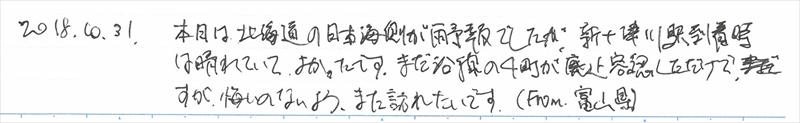 2018.10.31. 本日は北海道の日本海側が雨予報でしたが、新十津川駅到着時
は晴れていて、よかったです。まだ沿線の4町が廃止容認しただけで、
すが、悔いのないよう、また訪れたいです。(From. 富山県)